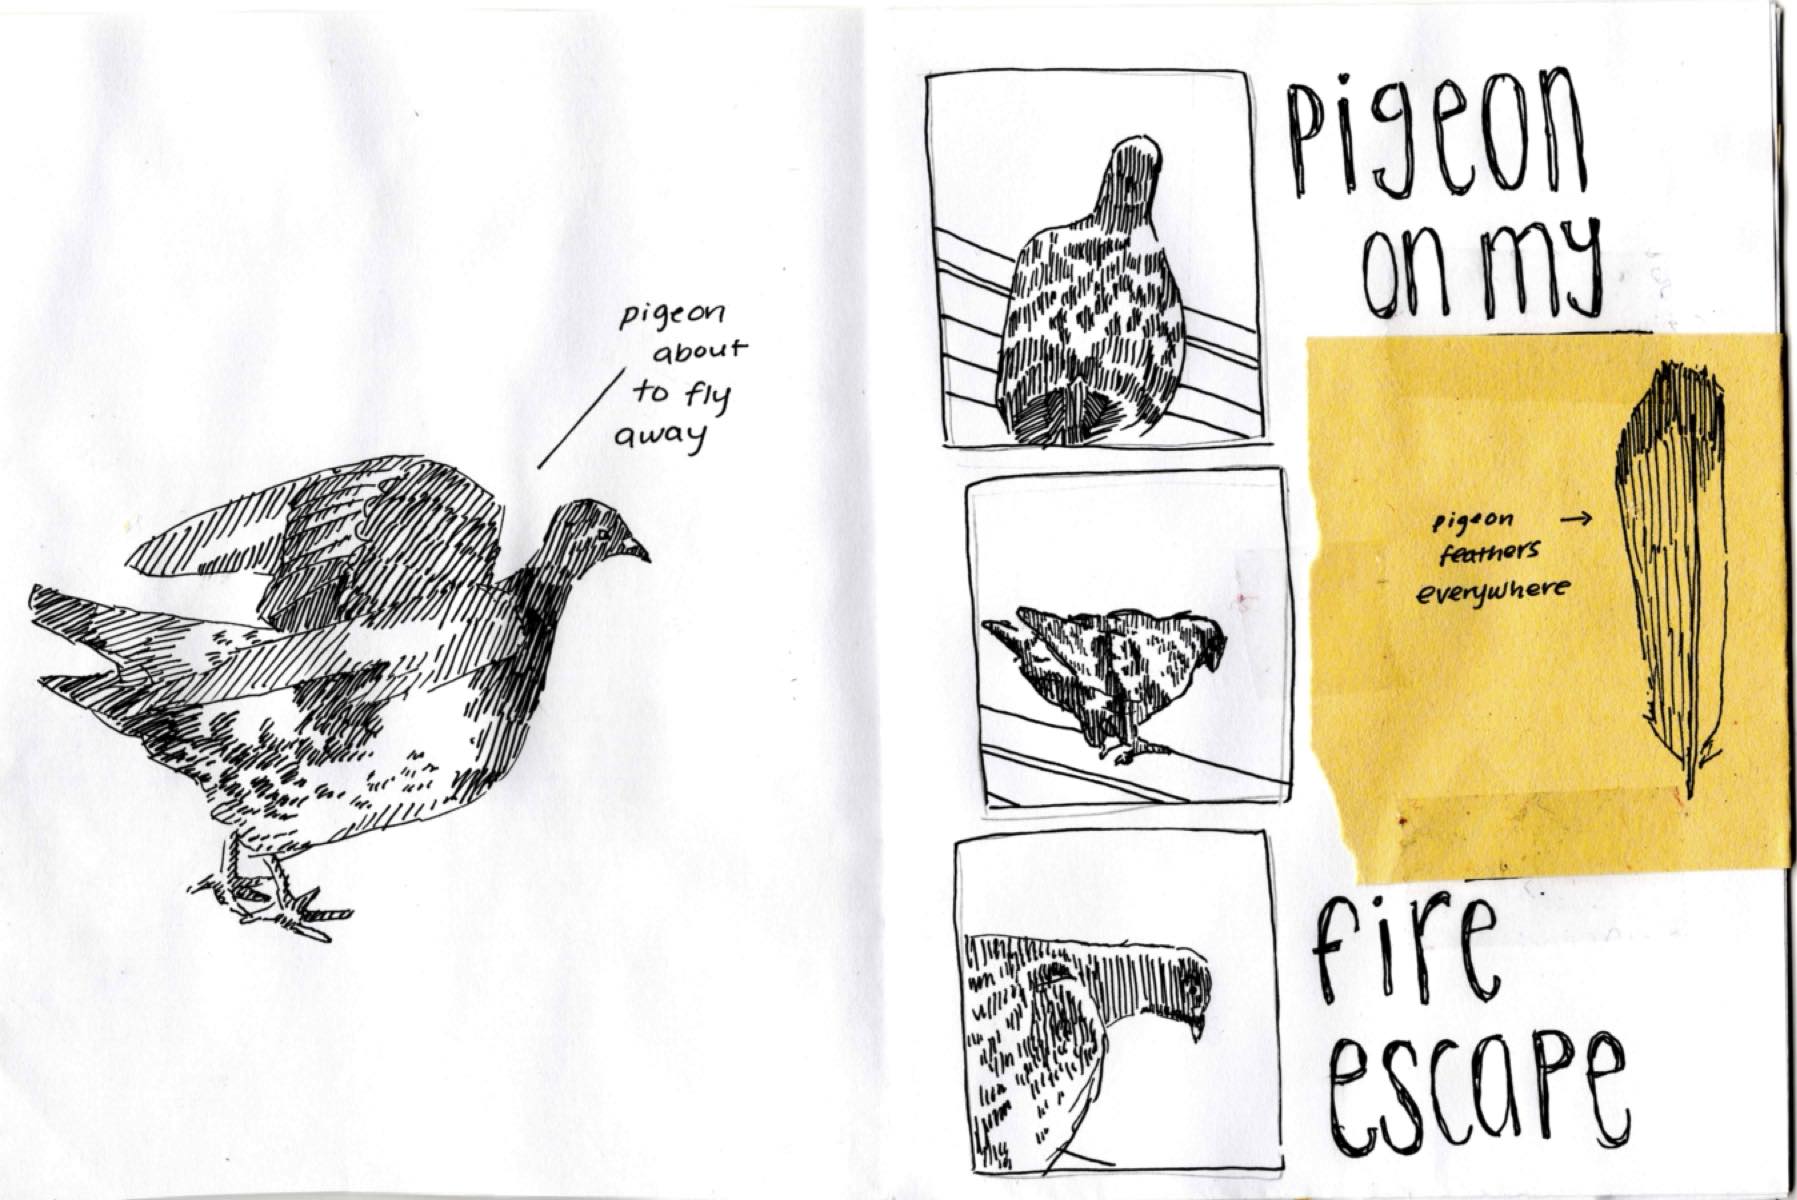 pigeon
about
to fly
away
pigeon
on my
pigeon →
feathers
everywhere
fire
escape